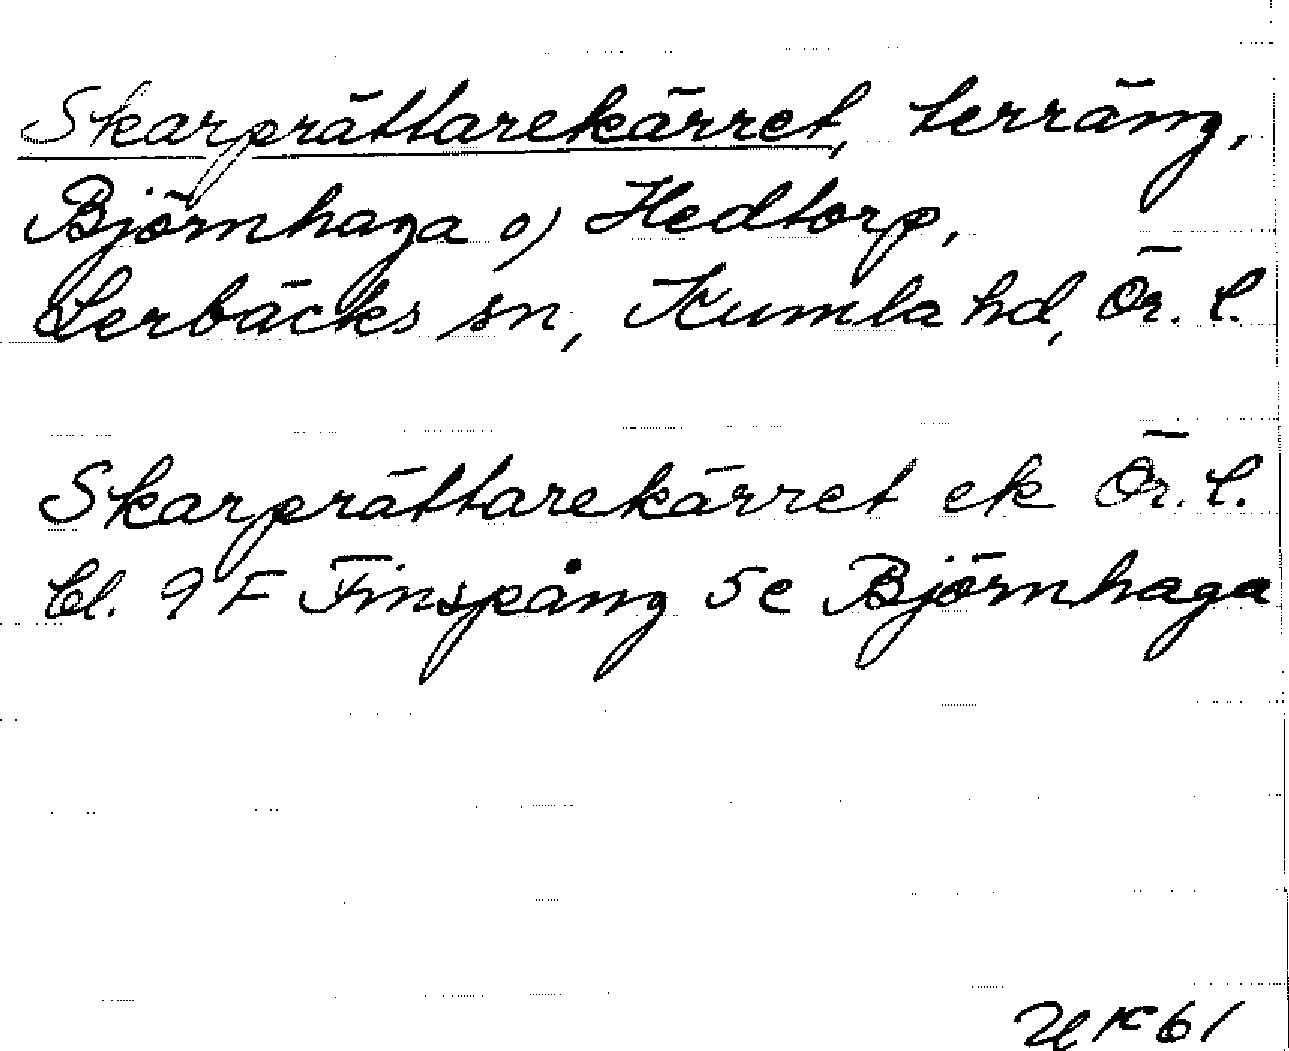 Skarprättarekärret, terräng,
Björnhaga o) Hedtorp,
Lerbäcks sn, Kumla hd, Ör. l.
Skarprättarekärret ek Ör. l.
bl. 9 F Finspång 5 c Björnhaga
61